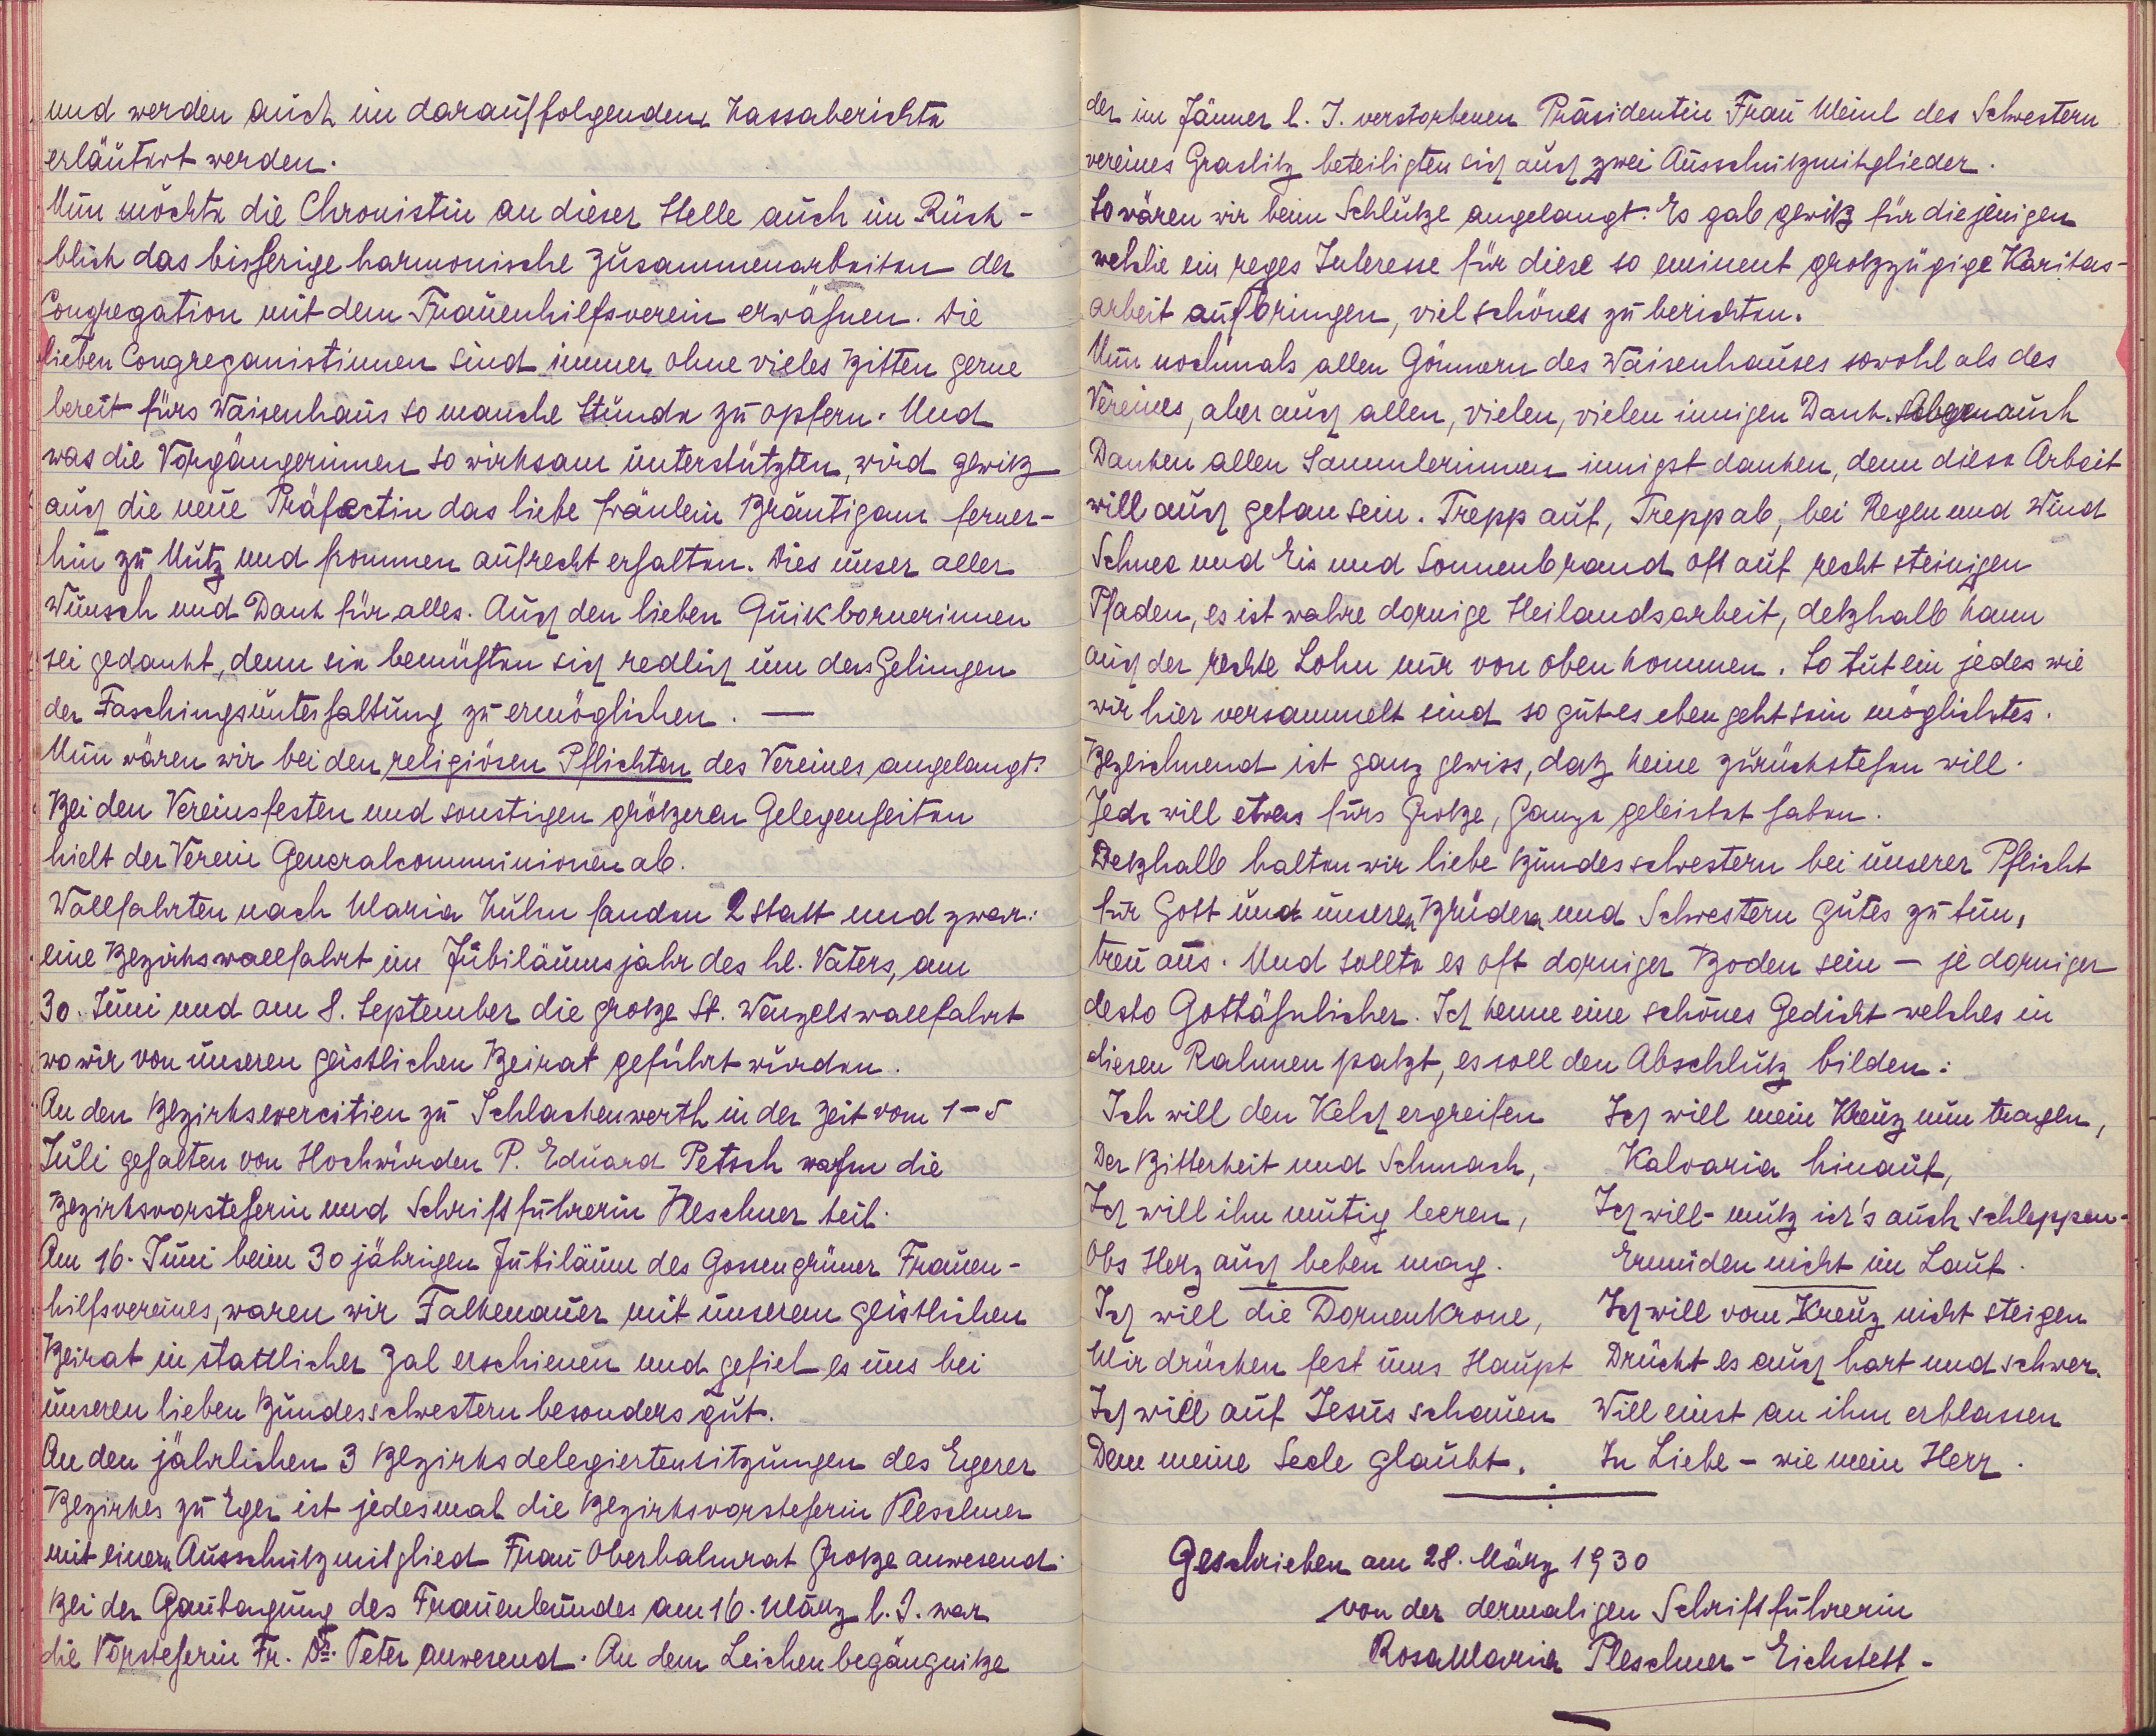 und werden auch im darauffolgenden Kassaberichte
erläutert werden.
Nun möchte die Chronistin an dieser Stelle auch im Rück-
blick das bisherige harmonische Zusammenarbeiten der
Congregation mit dem Frauenhilfsverein erwähnen. Die
lieben Congreganistinnen sind immer ohne vieles Bitten gerne
bereit fürs Waisenhaus so manche Stunde zu opfern. Und
was die Vorgängerinnen so wirksam unterstützten, wird gewiß
auch die neue Präfectin das liebe Fräulein Bräutigam ferner-
hin zu Nutz und frommen aufrecht erhalten. Dies unser aller
Wunsch und Dank für alles. Auch den lieben Quikbornerinnen
sei gedankt, denn sie bemühten sich redlich um das Gelingen
der Faschingsunterhaltung zu ermöglichen. —
Nun wären wir bei den religiösen Pflichten des Vereines angelangt.
Bei den Vereinsfesten und sonstigen größeren Gelegenheiten
hielt der Verein Generalcommunionen ab.
Wallfahrten nach Maria Kulm fanden 2 statt und zwar:
eine Bezirkswallfahrt im Jubiläumsjahr des hl. Vaters, am
30. Juni und am 8. September die große St. Wenzelswallfahrt
wo wir von unseren geistlichen Beirat geführt wurden.
An den Bezirksexercitien zu Schlackenwerth in der Zeit vom 1-5
Juli gehalten von Hochwürden P. Eduard Petsch nahm die
Bezirksvorsteherin und Schriftführerin Pleschner teil.
Am 16. Juni beim 30 jährigen Jubiläum des Gossengrüner Frauen-
hilfsvereines, waren wir Falkenauer mit unserem geistlichen
Beirat in stattlicher Zal erschienen und gefiel es uns bei
unseren lieben Bundesschwestern besonders gut.
An den jährlichen 3 Bezirksdelegiertensitzungen des Egerer
Bezirkes zu Eger ist jedesmal die Bezirksvorsteherin Pleschner
mit einem Ausschußmitglied Frau Oberbahnrat Große anwesend.
Bei der Gautagung des Frauenbundes am 16. März l. J. war
die Vorsteherin Fr. Dr. Peter anwesend. An dem Leichenbegängniße
der im Jänner l. J. verstorbenen Präsidentin Frau Meinl des Schwestern
vereines Graslitz beteiligten sich auch zwei Ausschußmitglieder.
So wären wir beim Schluße angelangt. Es gab gewiß für diejenigen
welche ein reges Interesse für diese so eminent großzügige Karitas-
arbeit aufbringen, viel schönes zu berichten.
Nun nochmals allen Gönnern des Waisenhauses sowohl als des
Vereines, aber auch allen, vielen, vielen innigen Dank. auch
Danken allen Sammlerinnen innigst danken, denn diese Arbeit
will auch getan sein. Trepp auf, Trepp ab, bei Regen und Wind
Schnee und Eis und Sonnenbrand oft auf recht steinigen
Pfaden, es ist wahre dornige Heilandsarbeit, deßhalb kann
auch der rechte Lohn nur von oben kommen. So tut ein jedes wie
wir hier versammelt sind so gut es eben geht sein möglichstes.
Bezeichnend ist ganz gewiss, daß keine zurückstehen will.
Jede will etwas fürs Große, Ganze geleistet haben.
Deßhalb halten wir liebe Bundesschwestern bei unserer Pflicht
für Gott und unseren Brüdern und Schwestern gutes zu tun,
treu aus. Und sollte es oft dorniger Boden sein — je dorniger
desto Gottähnlicher. Ich kenne eine schönes Gedicht welches in
diesen Rahmen paßt, es soll den Abschluß bilden:
Ich will den Kelch ergreifen
Der Bitterkeit und Schmach,
Ich will ihn mutig leeren,
Obs Herz auch beben mag.
Ich will die Dornenkrone,
Mir drücken fest ums Haupt
Ich will auf Jesus schauen
Dem meine Seele glaubt.
Ich will mein Kreuz nun tragen,
Kalvaria hinauf,
Ich will - muß ich's auch schleppen -
Ermüden nicht im Lauf.
Ich will vom Kreuz nicht steigen
Drückt es auch hart und schwer.
Will einst an ihm erblassen
In Liebe - wie mein Herr.
Geschrieben am 28. März 1930
von der dermaligen Schriftführerin
Rosa Maria Pleschner - Eichstett -